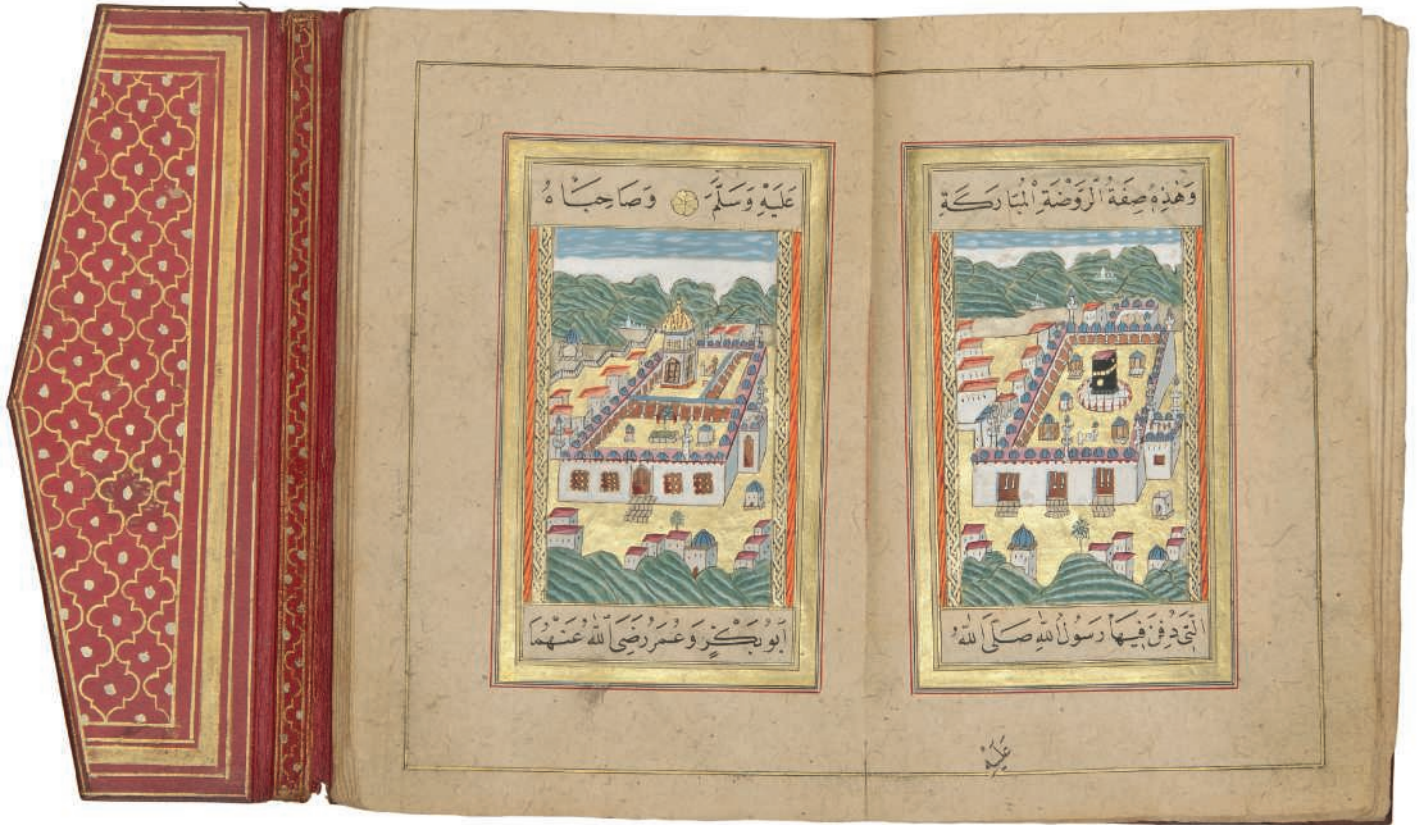 وَهٰذِهِ صِفَةُ الرَّوْضَةِ الْمُبَارَكَةِ
الَّتِي دُفِنَ فِيهَا رَسُولُ اللّٰهِ صَلَّى اللّٰهُ
عَلَيْهِ
عَلَيْهِ وَسَلَّمَ وَصَاحِبَاهُ
اَبُو بَكْرٍ وَعُمَرُ رَضِيَ اللّٰهُ عَنْهُمَا